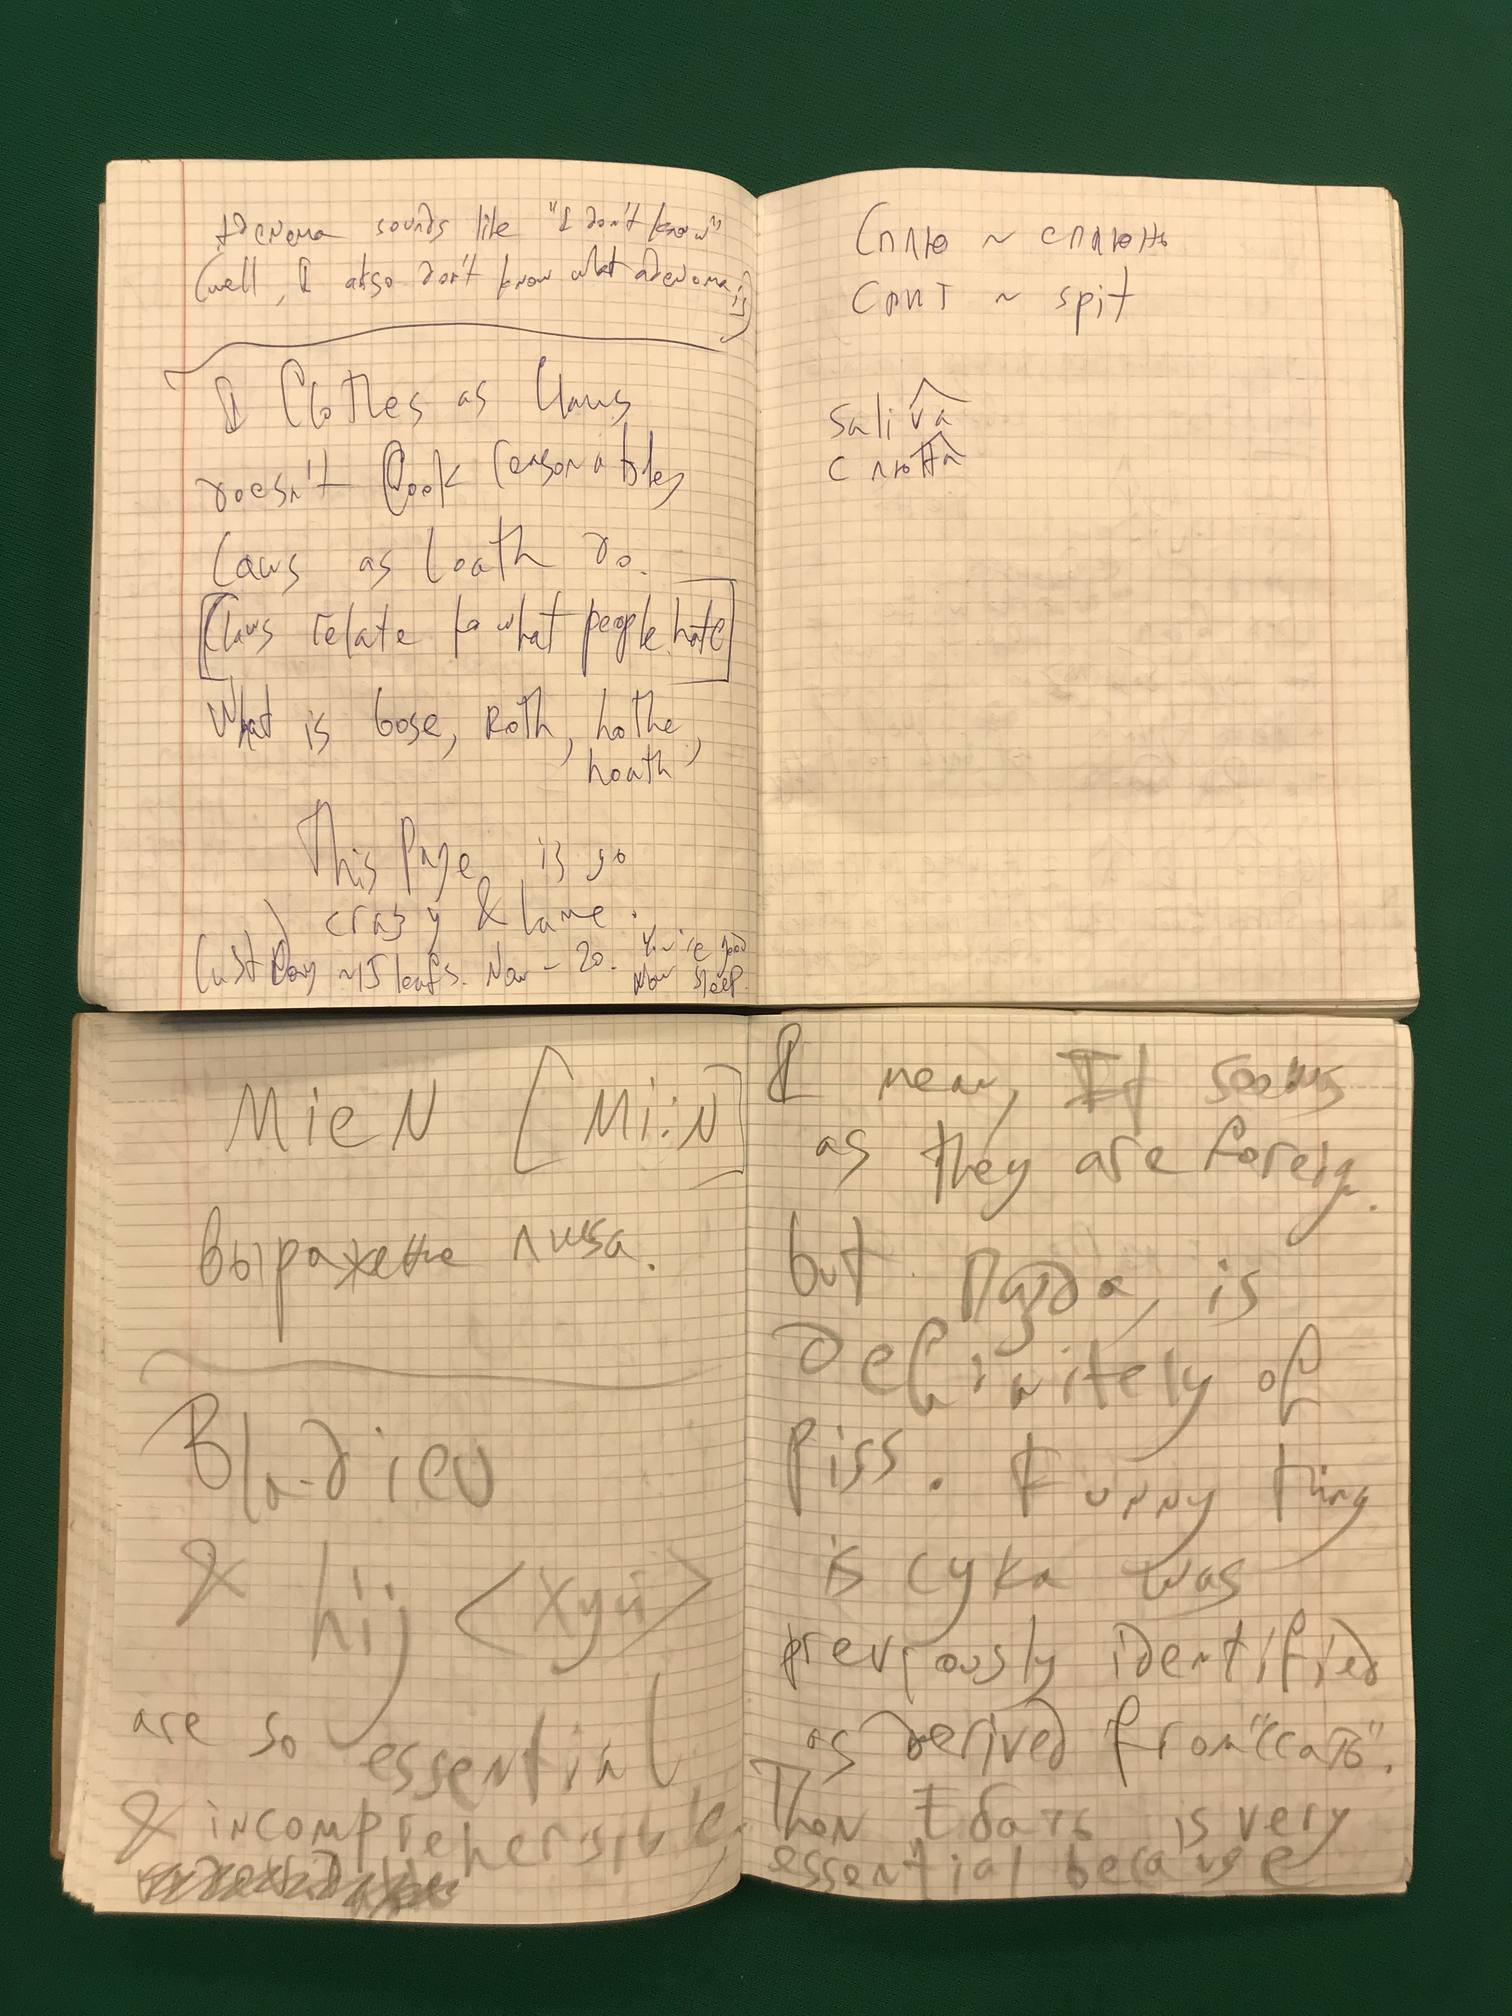 Adenoma sounds like "I don't know"
(well, I also don't know what adenoma is)
I Clothes as Claws
doesn't look reasonable
Laws as loath do.
[Claws relate to what people hate]
What is bose, Roth, hothe,
hoath
This page is so
crazy & lame.
Last Day ~15 leafs. Now - 20. You're good
Now sleep.
Сплю ~ сплюнь
спит ~ spit
saliva
слюна
MieN [Mi:N]
выражение лица.
Bla-dieu
& hij <хуй>
are so essential
& incomprehensible.
I mean, It seems
as they are foreign.
but Пизда, is
Definitely of
piss. Funny thing
is сука was
previously identified
as derived from "ссать".
Then Ебать is very
essential because